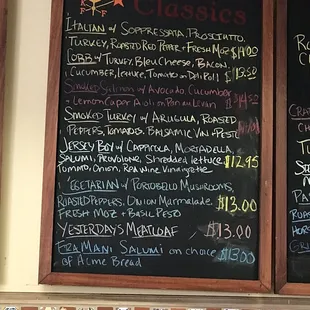 Classics
ITALIAN w/ SOPPRESSATA, PROSCIUTTO,
TURKEY, ROASTED RED PEPPER + FRESH MOZ $14.00
COBB w/ TURKEY, BLEU CHEESE, BACON
CUCUMBER, LETTUCE, TOMATO ON DELI ROLL $13.50
SMOKED SALMON w/ AVOCADO, CUCUMBER
+ LEMON CAPER AIOLI ON PAIN AU LEVAIN $14.50
SMOKED TURKEY w/ ARUGULA, ROASTED
PEPPERS, TOMATOES, BALSAMIC VIN + PESTO
JERSEY BOY w/ CAPPICOLA, MORTADELLA,
SALUMI, PROVOLONE, SHREDDED LETTUCE $12.95
TOMATO, ONION, RED WINE VINAIGRETTE
VEGETARIAN w/ PORTOBELLO MUSHROOMS,
ROASTED PEPPERS, ONION MARMALADE $13.00
FRESH MOZ + BASIL PESTO
YESTERDAY'S MEATLOAF $13.00
FRA'MANI SALUMI on choice $13.00
of Acme Bread